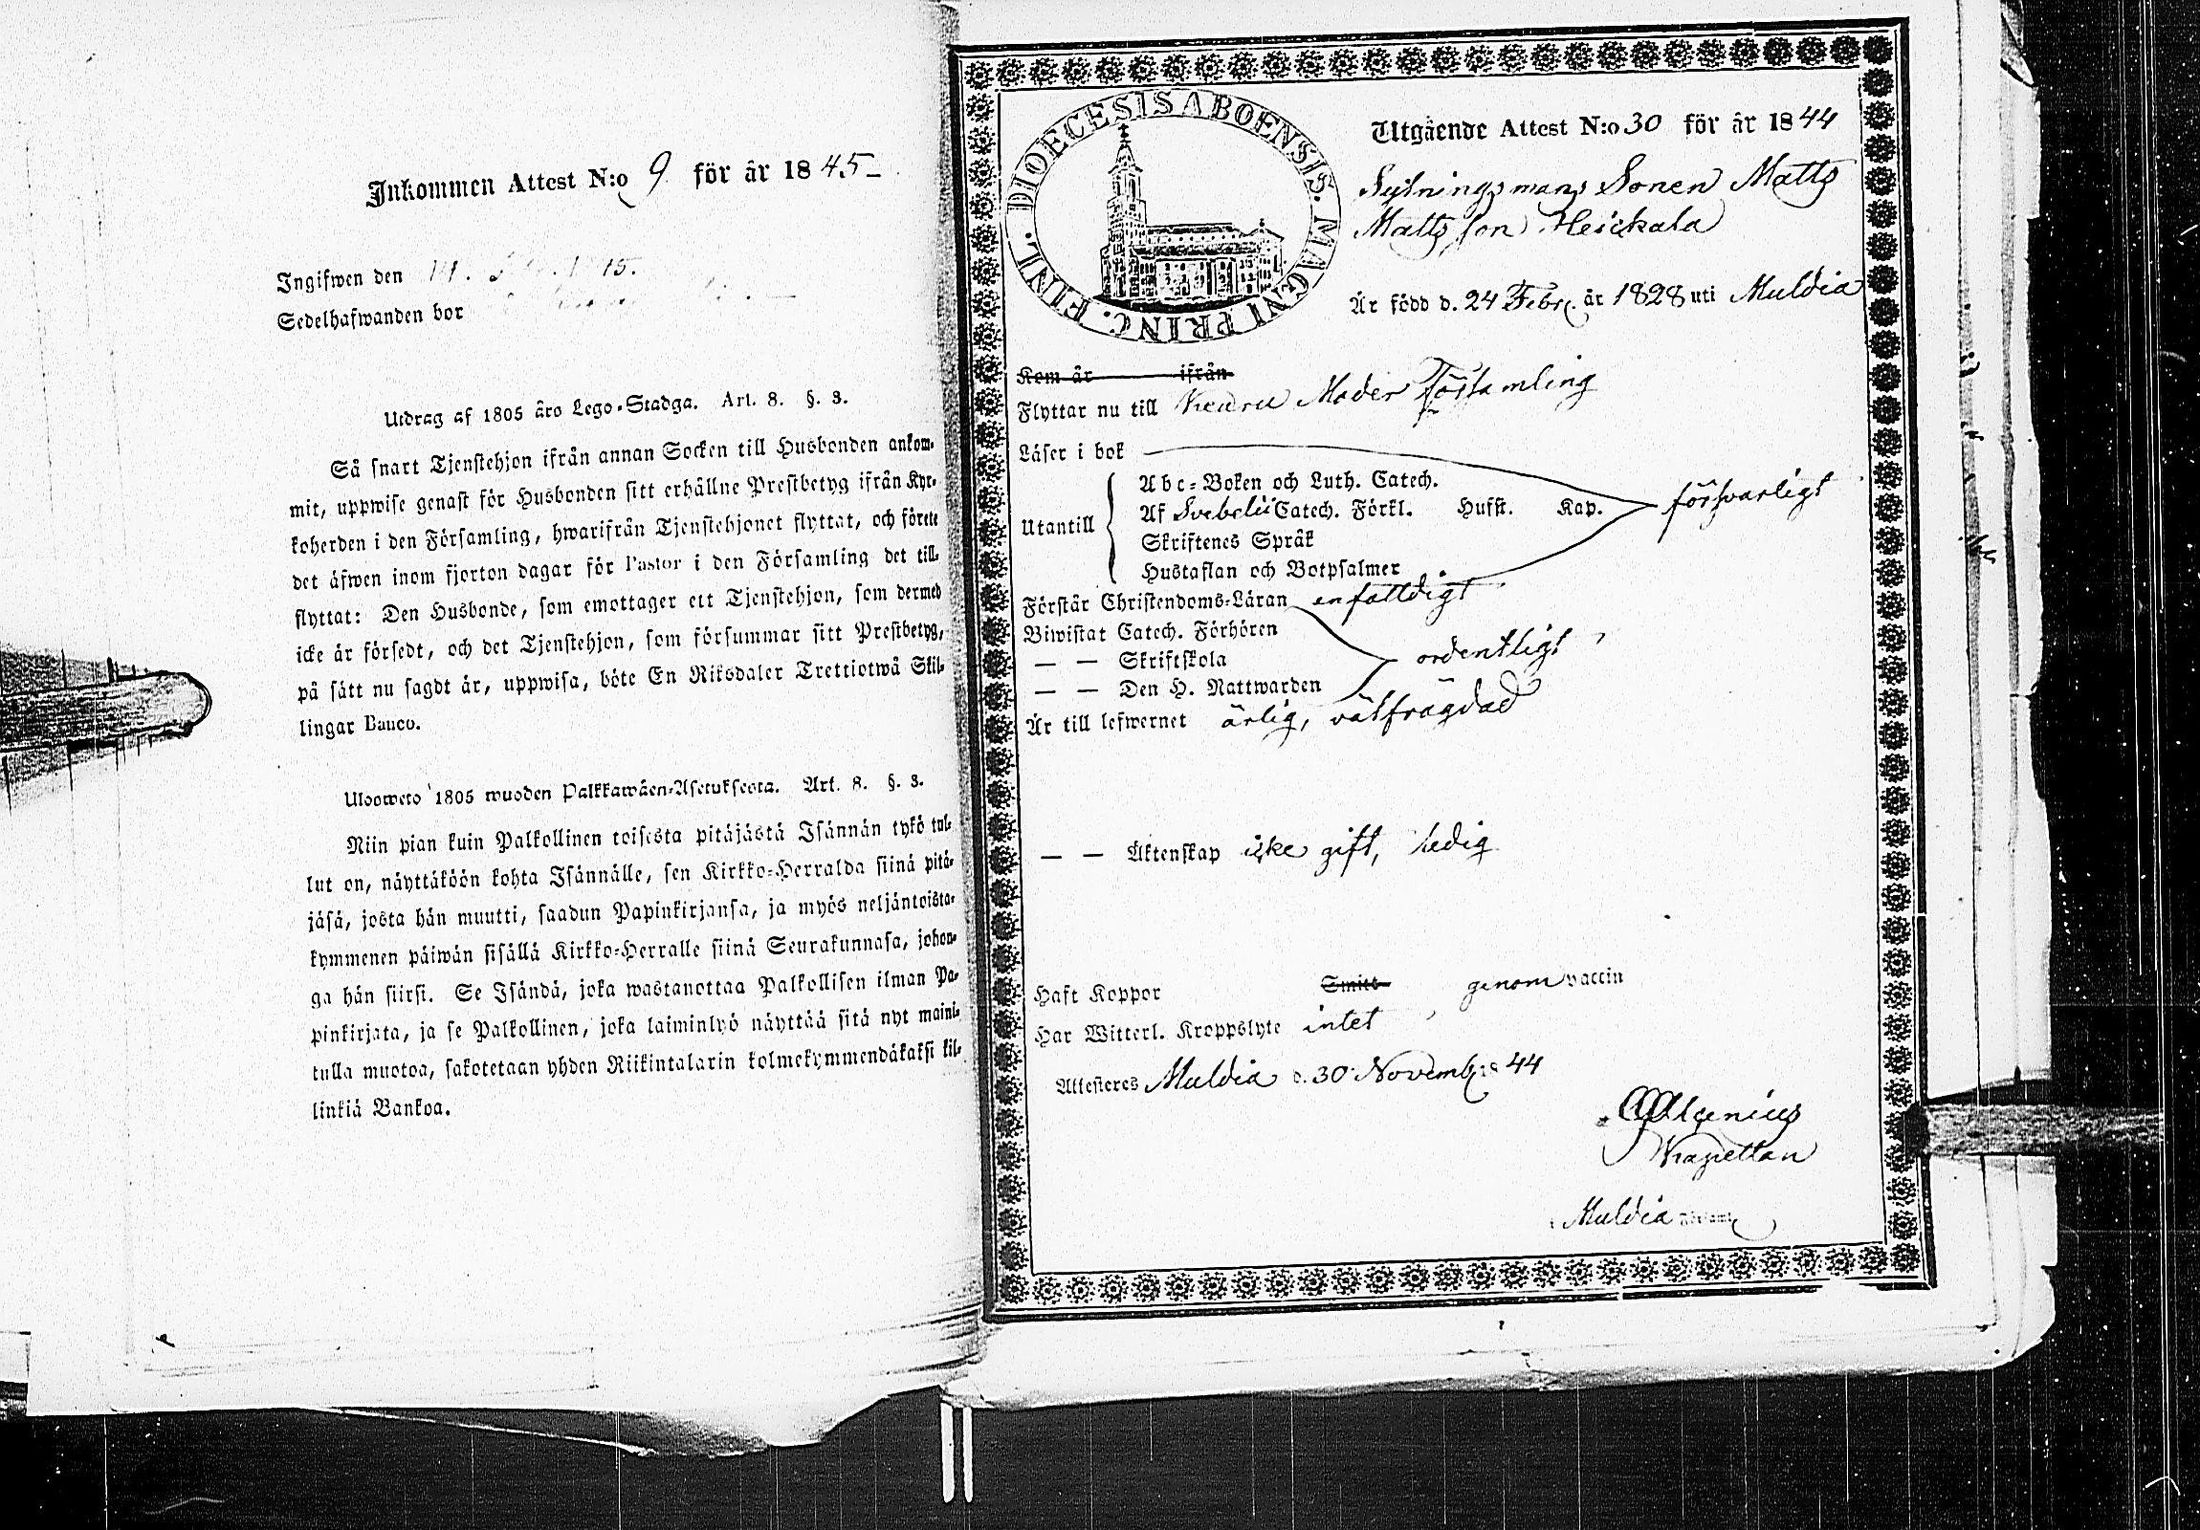 Inkommen Attest N:o 9 för år 1845
Ingifwen den
Sedelhafwanden bor
Utdrag af 1805 års Lego-Stadga. Art. 8. §. 3.
Så snart Tjenstehjon ifrån annan Socken till Husbonden ankom-
mit, uppwise genast för Husbonden sitt erhållne Prestbetyg ifrån Kyr-
koherden i den Församling, hwarifrån Tjenstehjonet flyttat, och förete
det äfwen inom fjorton dagar för Pastor i den Församling det till-
flyttat: Den Husbonde, som emottager ett Tjenstehjon, som dermed
icke är försedt, och det Tjenstehjon, som försummar sitt Prestbetyg,
på sätt nu sagdt är, uppwisa, böte En Riksdaler Trettiotwå Skil-
lingar Banco.
Uloswetо 1805 wuoden Palkkawäen-Asetuksesta. Art. 8. §. 3.
Niin pian kuin Palkollinen toisesta pitäjästä Isännän tykö tul-
lut on, näyttäköön kohta Isännälle, sen Kirkko-Herralda siinä pitä-
jäsä, josta hän muutti, saadun Papinkirjansa, ja myös neljäntoista-
kymmenen päiwän sisällä Kirkko-Herralle siinä Seurakunnasa, johon-
ga hän siirsi. Se Isändä, joka wastanottaa Palkollisen ilman Pa-
pinkirjata, ja se Palkollinen, joka laiminlyö näyttää sitä nyt maini-
tulla muotoa, sakotetaan yhden Riikintalarin kolmekymmendäkaksi kil-
linkiä Bankoa.
DIOECESIS ABOENSIS. MAGNI PRINC. FINL.
Utgående Attest N:o 30 för år 1844
Sytningsmans Sonen Matts
Mattsson Heickala
Är född d. 24 Febr. år 1828 uti Muldia
Kom år ifrån
Flyttar nu till Keuru Moder Församling
Läser i bok
Abc-Boken och Luth. Catech.
Utantill Af Svebelii Catech. Förkl. Hufst. Kap. försvarligt
Skriftenes Språk
Hustaflan och Botpsalmer
Förstår Christendoms-Läran enfalldigt
Biwistat Catech. Förhören
— — Skriftskola ordentligt
— — Den H. Nattwarden
Är till lefwernet ärlig, välfrägdad
— — Äktenskap icke gift, ledig
Haft Koppor Smitt genom vaccin
Har Witterl. Kroppslyte intet
Attesteras Muldia d. 30 Novemb. 1844
Kapellan
i Muldia Församl.